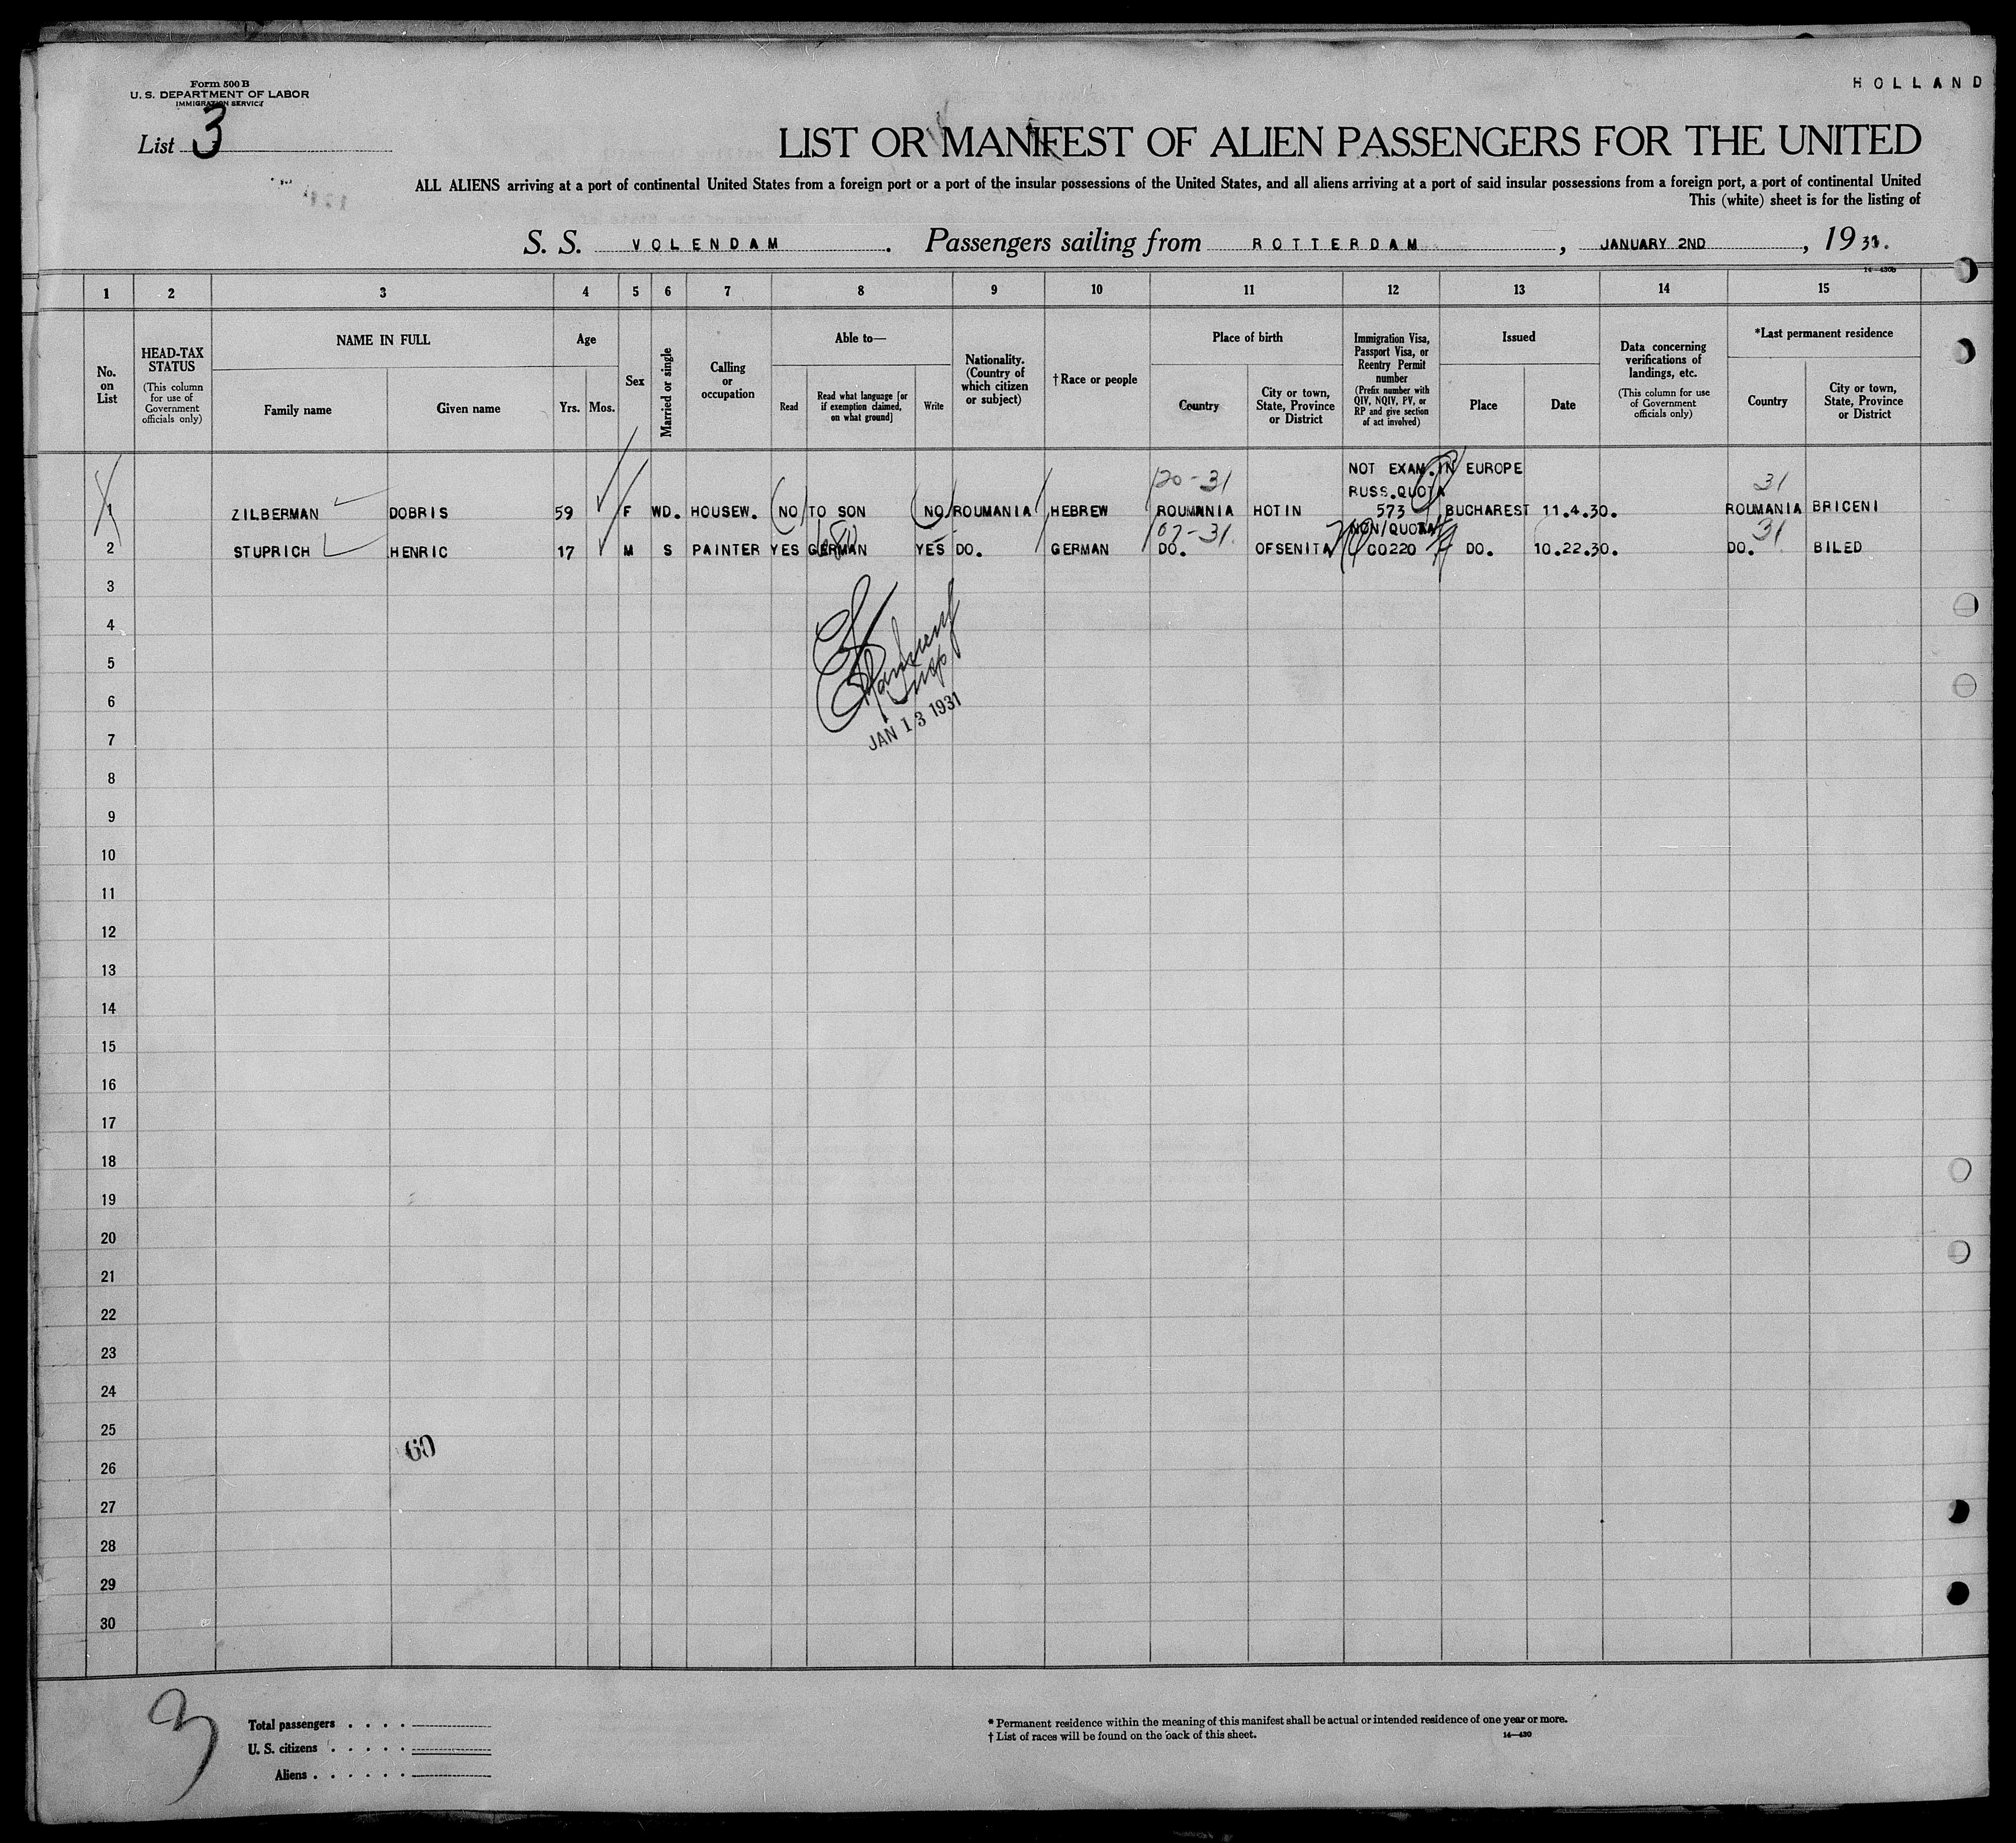 Form 500 B
U. S. DEPARTMENT OF LABOR
IMMIGRATION SERVICE
HOLLAND
List 3
LIST OR MANIFEST OF ALIEN PASSENGERS FOR THE UNITED
ALL ALIENS arriving at a port of continental United States from a foreign port or a port of the insular possessions of the United States, and all aliens arriving at a port of said insular possessions from a foreign port, a port of continental United
This (white) sheet is for the listing of
S. S. VOLENDAM. Passengers sailing from ROTTERDAM, JANUARY 2ND, 1931.
14—430b
1 2 3 4 5 6 7 8 9 10 11 12 13 14 15
No. on List
HEAD-TAX STATUS
(This column for use of Government officials only)
NAME IN FULL
Family name
Given name
Age
Yrs.
Mos.
Sex
Married or single
Calling or occupation
Able to—
Read
Read what language [or if exemption claimed, on what ground]
Write
Nationality. (Country of which citizen or subject)
† Race or people
Place of birth
Country
City or town, State, Province or District
Immigration Visa, Passport Visa, or Reentry Permit number
(Prefix number with QIV, NQIV, PV, or RP and give section of act involved)
Issued
Place
Date
Data concerning verifications of landings, etc.
(This column for use of Government officials only)
*Last permanent residence
Country
City or town, State, Province or District
NOT EXAM. IN EUROPE
120-31
31
RUSS. QUOTA
1 ZILBERMAN DOBRIS 59 F WD. HOUSEW. NO TO SON NO ROUMANIA HEBREW ROUMANIA HOTIN 573 BUCHAREST 11.4.30. ROUMANIA BRICENI
107-31
NON/QUOTA
31
2 STUPRICH HENRIC 17 M S PAINTER YES GERMAN YES DO. GERMAN DO. OFSENITA CO220 DO. 10.22.30. DO. BILED
3
4
5
6
Insp
JAN 13 1931
7
8
9
10
11
12
13
14
15
16
17
18
19
20
21
22
23
24
25
60
26
27
28
29
30
3
Total passengers . . . .
U. S. citizens . . . . .
Aliens . . . . . .
* Permanent residence within the meaning of this manifest shall be actual or intended residence of one year or more.
† List of races will be found on the back of this sheet.
14—430